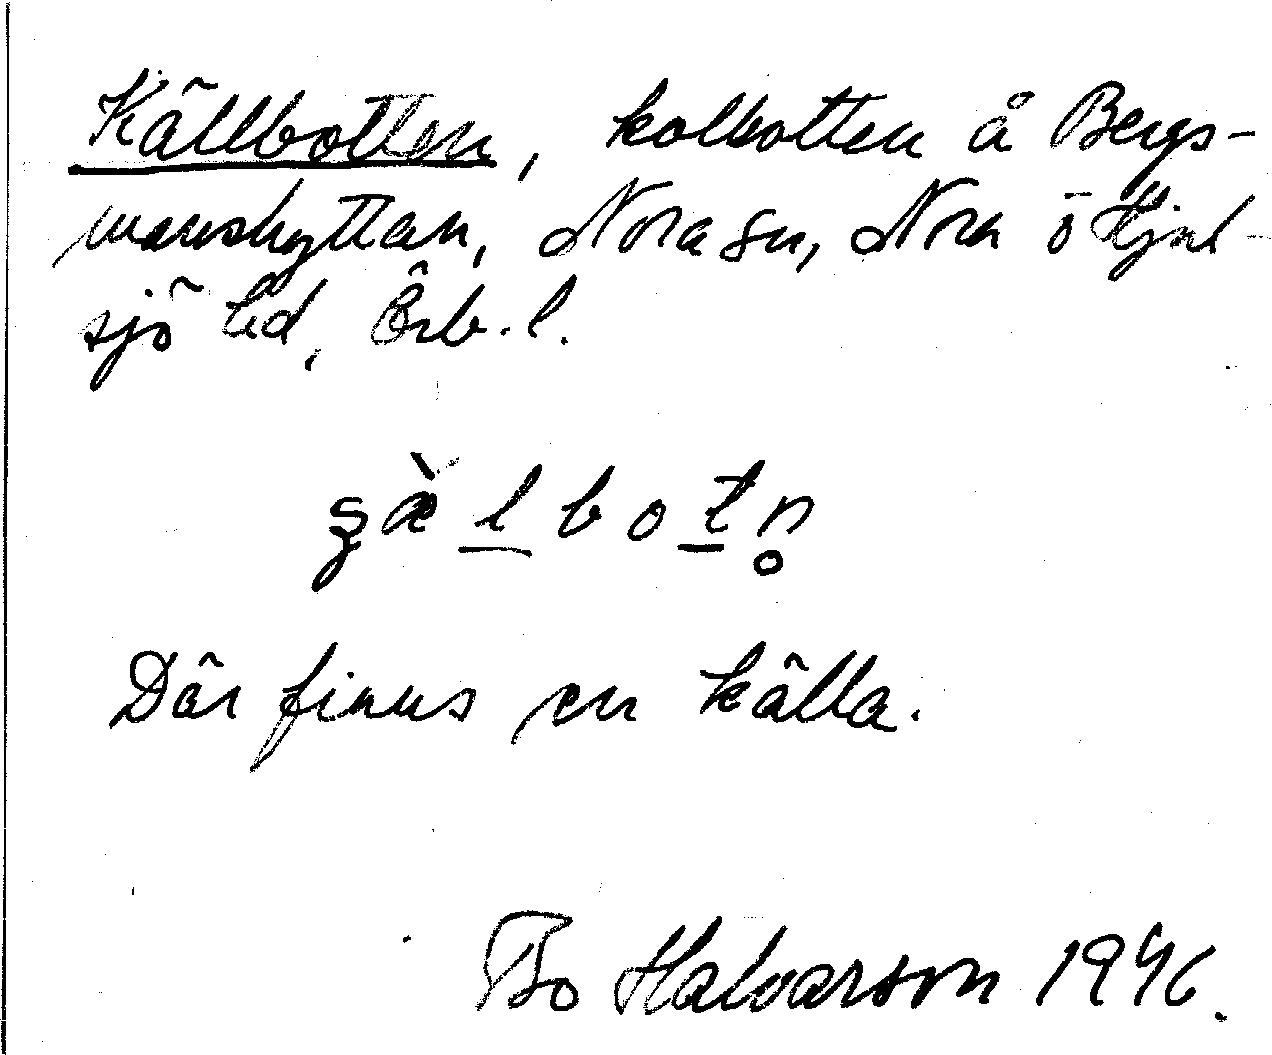 Källbotten, kolbotten å Bergs-
manshyttan, Nora sn, Nora o Hjul-
sjö bd, Örb. l.
Där finns en källa.
Bo Halvarson 1946.